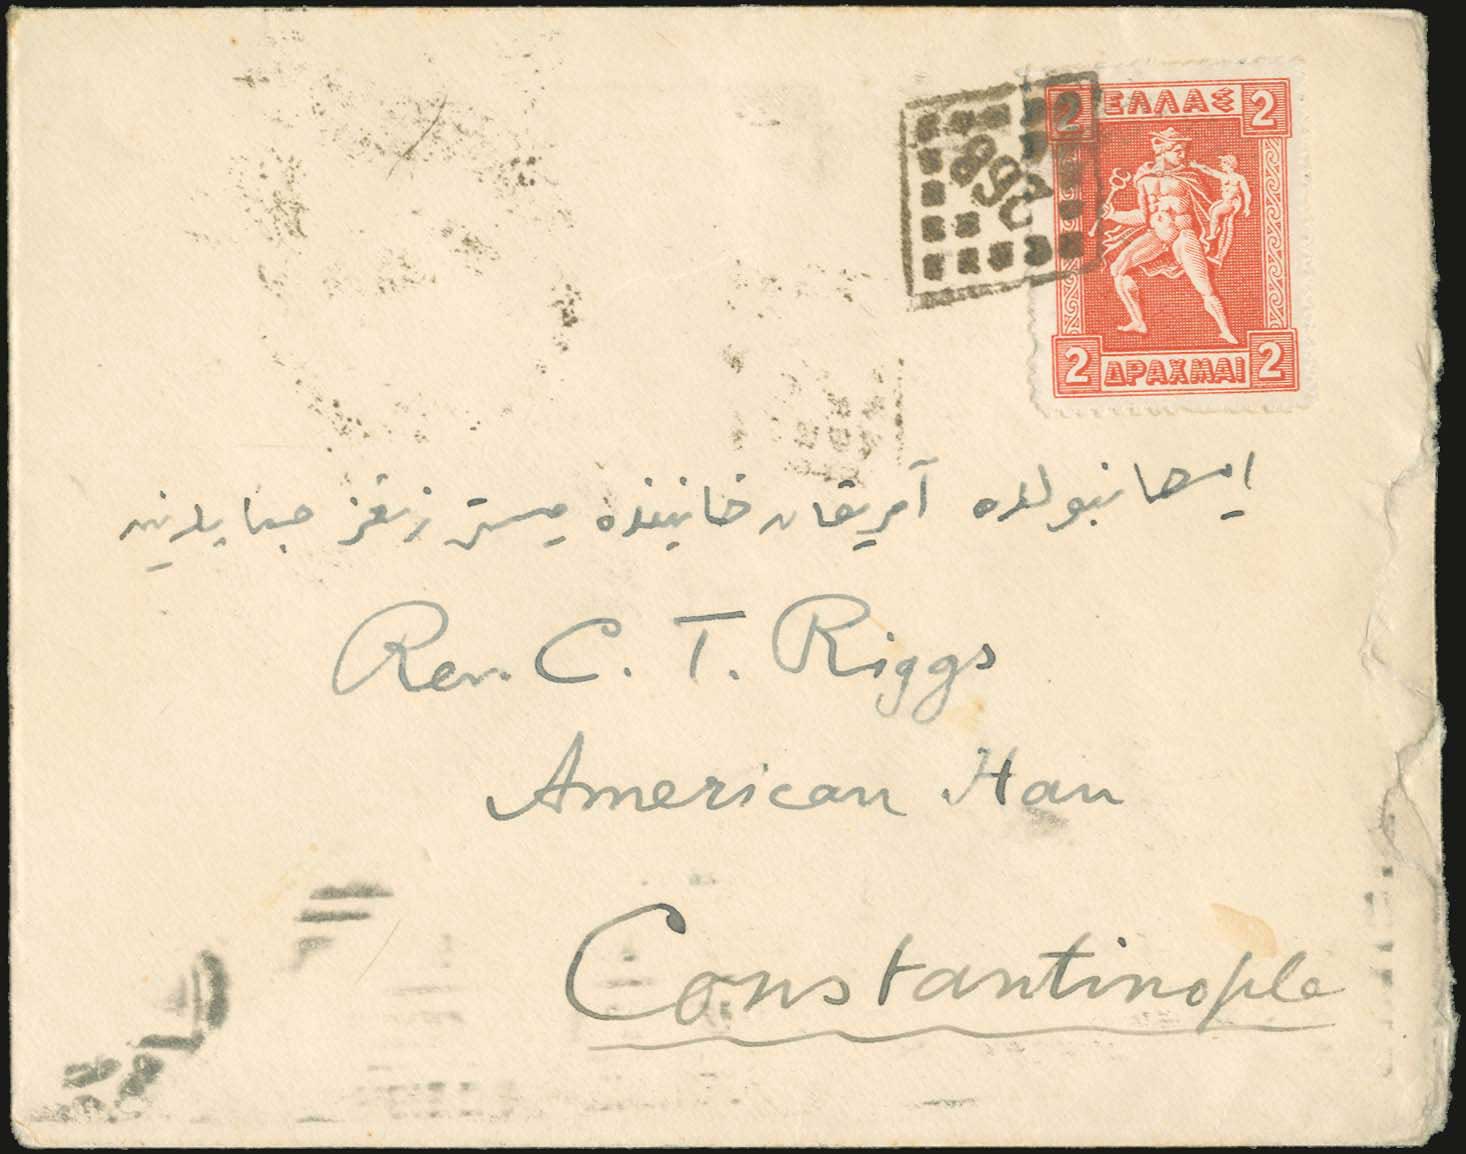 2 ΕΛΛΑΣ 2
268
2 ΔΡΑΧΜΑΙ 2
استانبولده آمریقان خاننده میستر ریغز جنابلرینه
Rev. C. T. Riggs
American Han
Constantinople